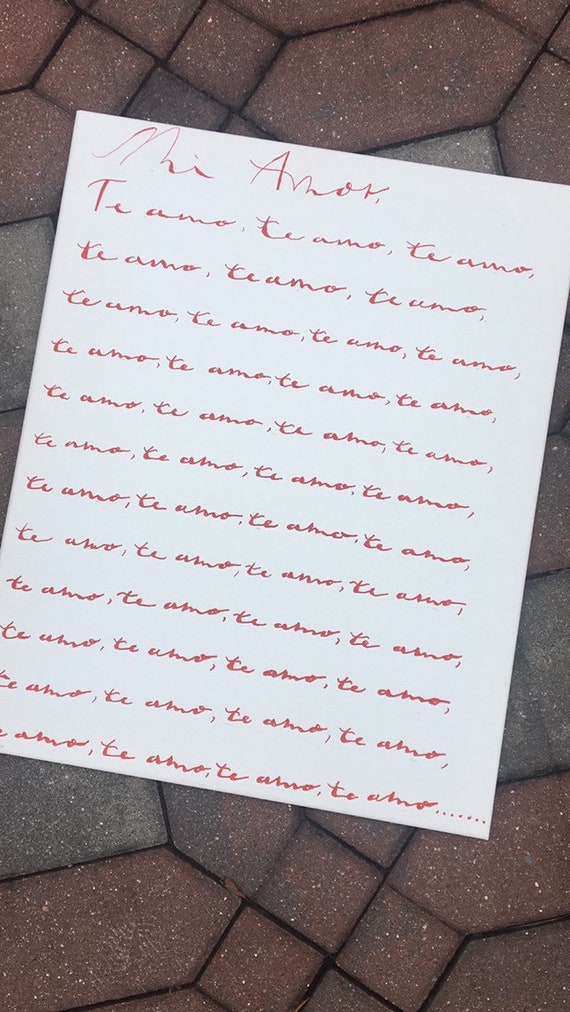 Mi Amor,
Te amo, te amo, te amo,
te amo, te amo, te amo,
te amo, te amo, te amo, te amo,
te amo, te amo, te amo, te amo,
te amo, te amo, te amo, te amo,
te amo, te amo, te amo, te amo,
te amo, te amo, te amo, te amo,
te amo, te amo, te amo, te amo,
te amo, te amo, te amo, te amo,
te amo, te amo, te amo, te amo,
te amo, te amo, te amo, te amo,
te amo, te amo, te amo, te amo.......